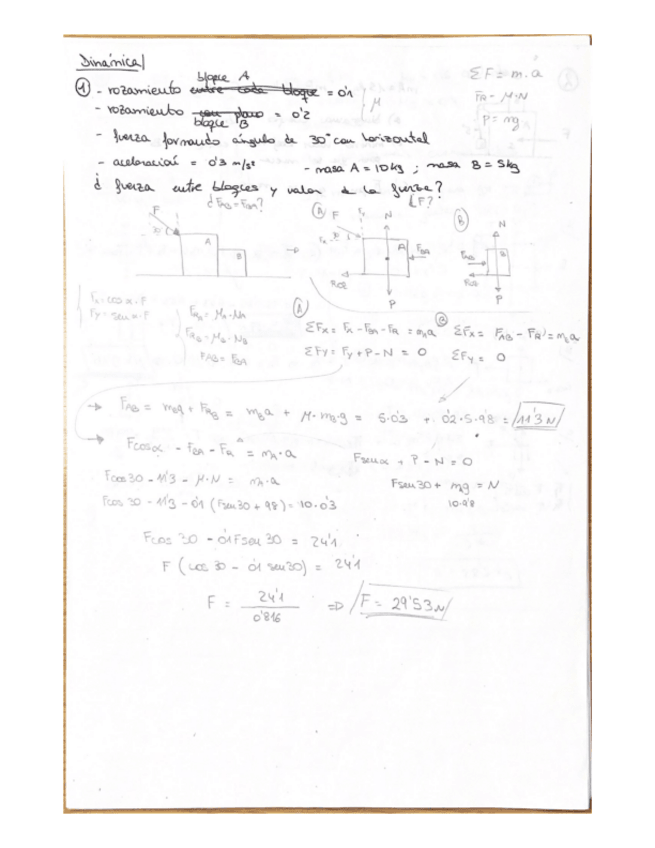 Dinámica
ΣF = m.a
bloque A
① - rozamiento entre cada bloque = 0'1
FR = μ.N
- rozamiento con plano = 0'2
μ
bloque B
P = mg
- fuerza formando ángulo de 30° con horizontal
- aceleración = 0'3 m/s² - masa A = 10 kg ; masa B = 5 kg
¿ fuerza entre bloques y valor de la fuerza?
¿FAB = FBA? ¿F?
F 30 A B
Ⓐ F Fy N Fx 30 A FBA ROZ P
Ⓑ N FAB B ROZ P
Fx = cos α · F
Fy = sen α · F
FRA = μA · NA
FRB = μB · NB
FAB = FBA
Ⓐ
ΣFx = Fx - FBA - FR = mA a
ΣFy = Fy + P - N = 0
Ⓑ
ΣFx = FAB - FR = mB a
ΣFy = 0
→ FAB = mBa + FRB = mBa + μ · mB · g = 5 · 0'3 + 0'2 · 5 · 9'8 = 11'3 N
→ F cos α - FBA - FR = mA · a
F sen α + P - N = 0
F cos 30 - 11'3 - μ · N = mA · a
F sen 30 + mg = N
F cos 30 - 11'3 - 0'1 (F sen 30 + 98) = 10 · 0'3
10·9'8
F cos 30 - 0'1 F sen 30 = 24'1
F (cos 30 - 0'1 sen 30) = 24'1
F = 24'1 / 0'816 ⇒ F = 29'53 N